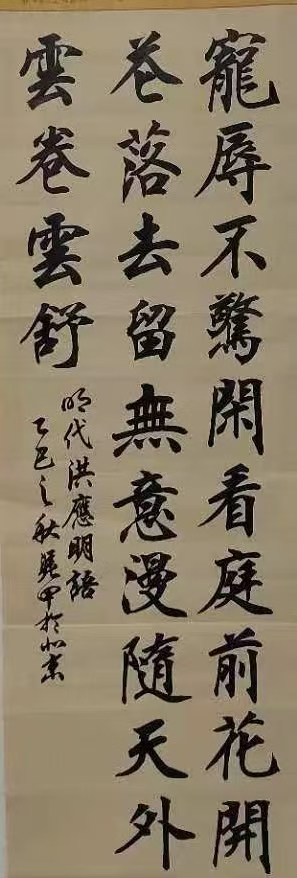 寵辱不驚閑看庭前花開
花落去留無意漫隨天外
雲卷雲舒
明代洪應明語
乙巳之秋 甲於北京